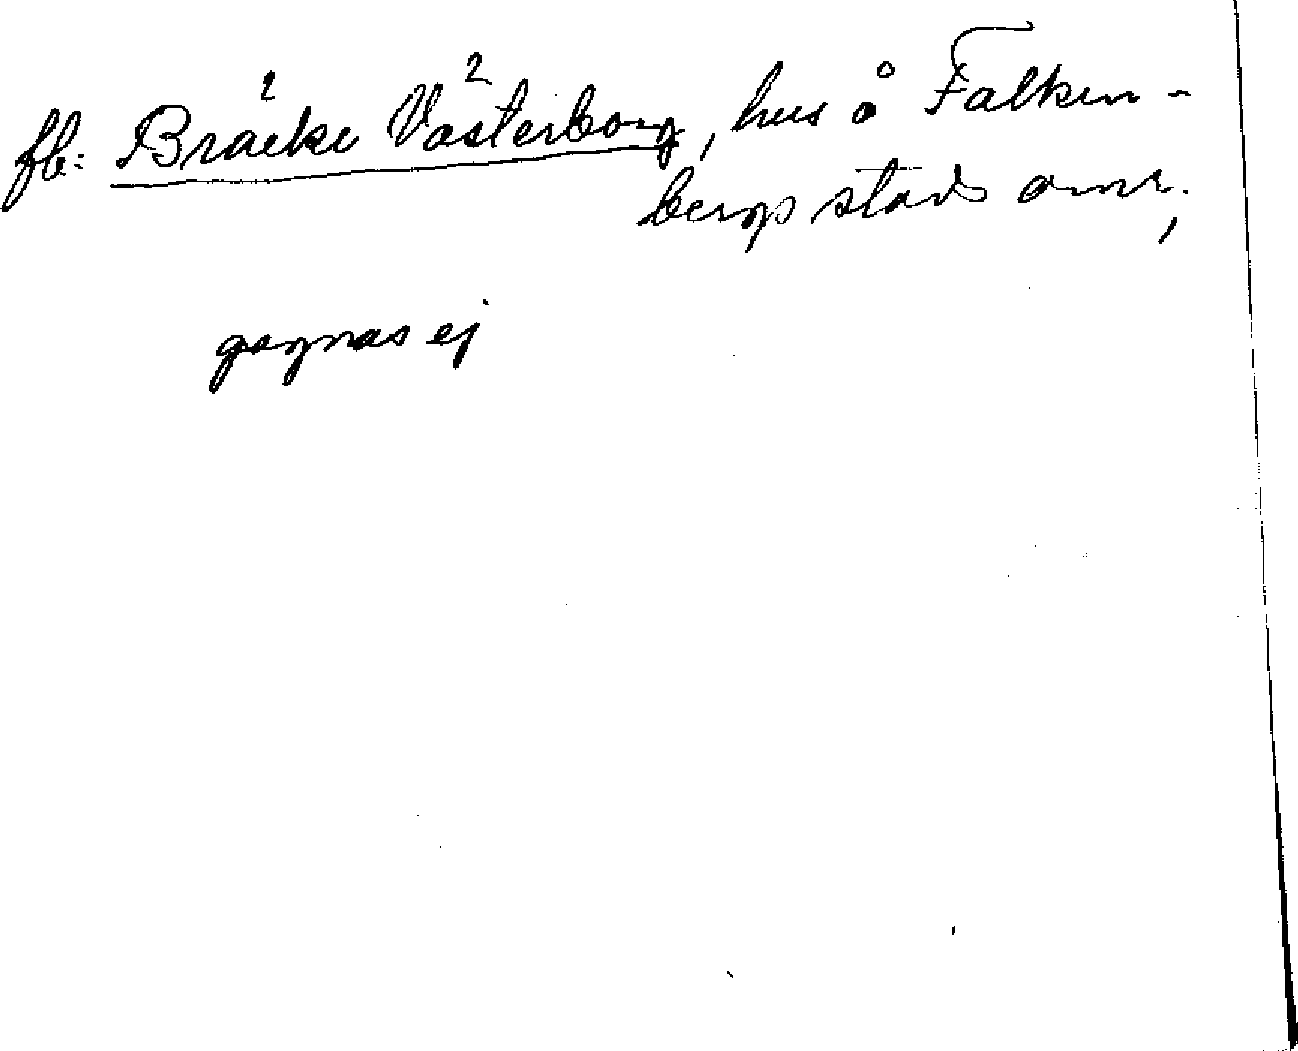 fb: Bräcke Västerborg, hus å Falken-
bergs stads omr.,
gagnas ej